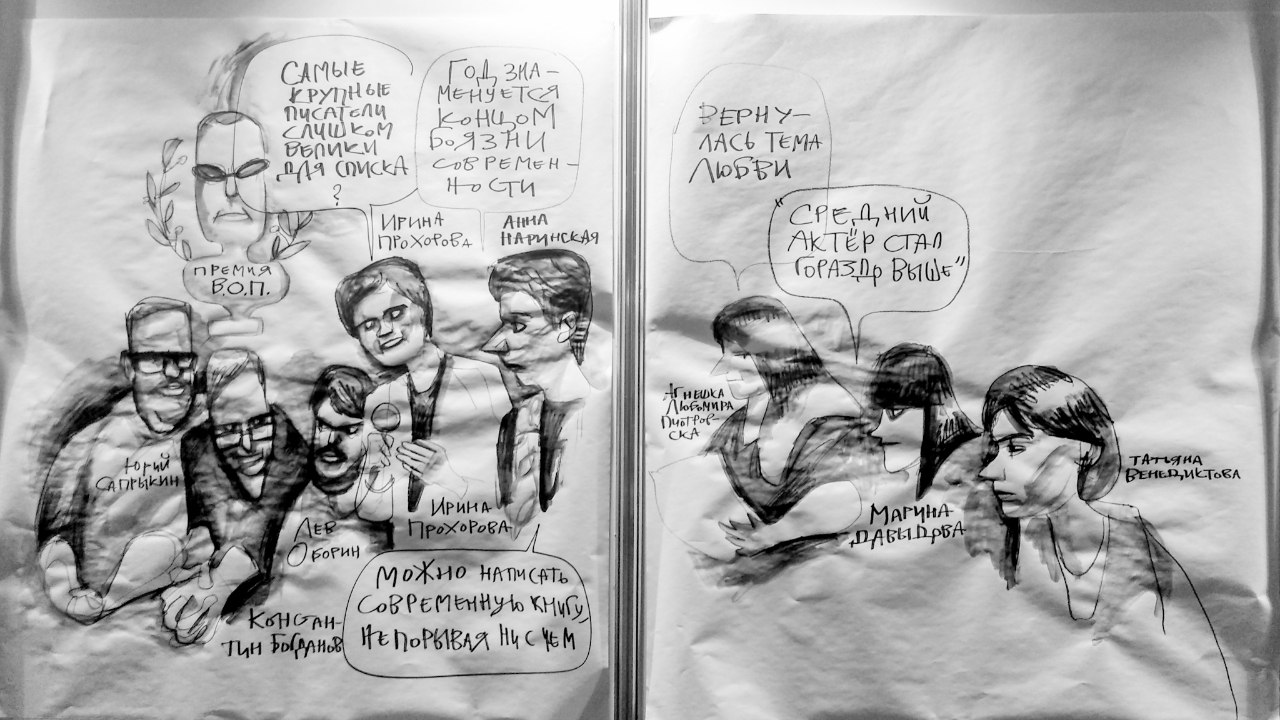 САМЫЕ
КРУПНЫЕ
ПИСАТЕЛИ
СЛИШКОМ
ВЕЛИКИ
ДЛЯ СПИСКА
?
ГОД ЗНА-
МЕНУЕТСЯ
КОНЦОМ
БОЯЗНИ
СОВРЕМЕН-
НОСТИ
ИРИНА
ПРОХОРОВА
АННА
НАРИНСКАЯ
ПРЕМИЯ
В.О.П.
ЮРИЙ
САПРЫКИН
ЛЕВ
ОБОРИН
ИРИНА
ПРОХОРОВА
КОНСТАН-
ТИН БОГДАНОВ
МОЖНО НАПИСАТЬ
СОВРЕМЕННУЮ КНИГУ,
НЕ ПОРЫВАЯ НИ С ЧЕМ
ВЕРНУ-
ЛАСЬ ТЕМА
ЛЮБВИ
"СРЕДНИЙ
АКТЁР СТАЛ
ГОРАЗДО ВЫШЕ"
АГНЕШКА
ЛЮБОМИРА
ПИОТРОВ-
СКА
МАРИНА
ДАВЫДОВА
ТАТЬЯНА
ВЕНЕДИКТОВА